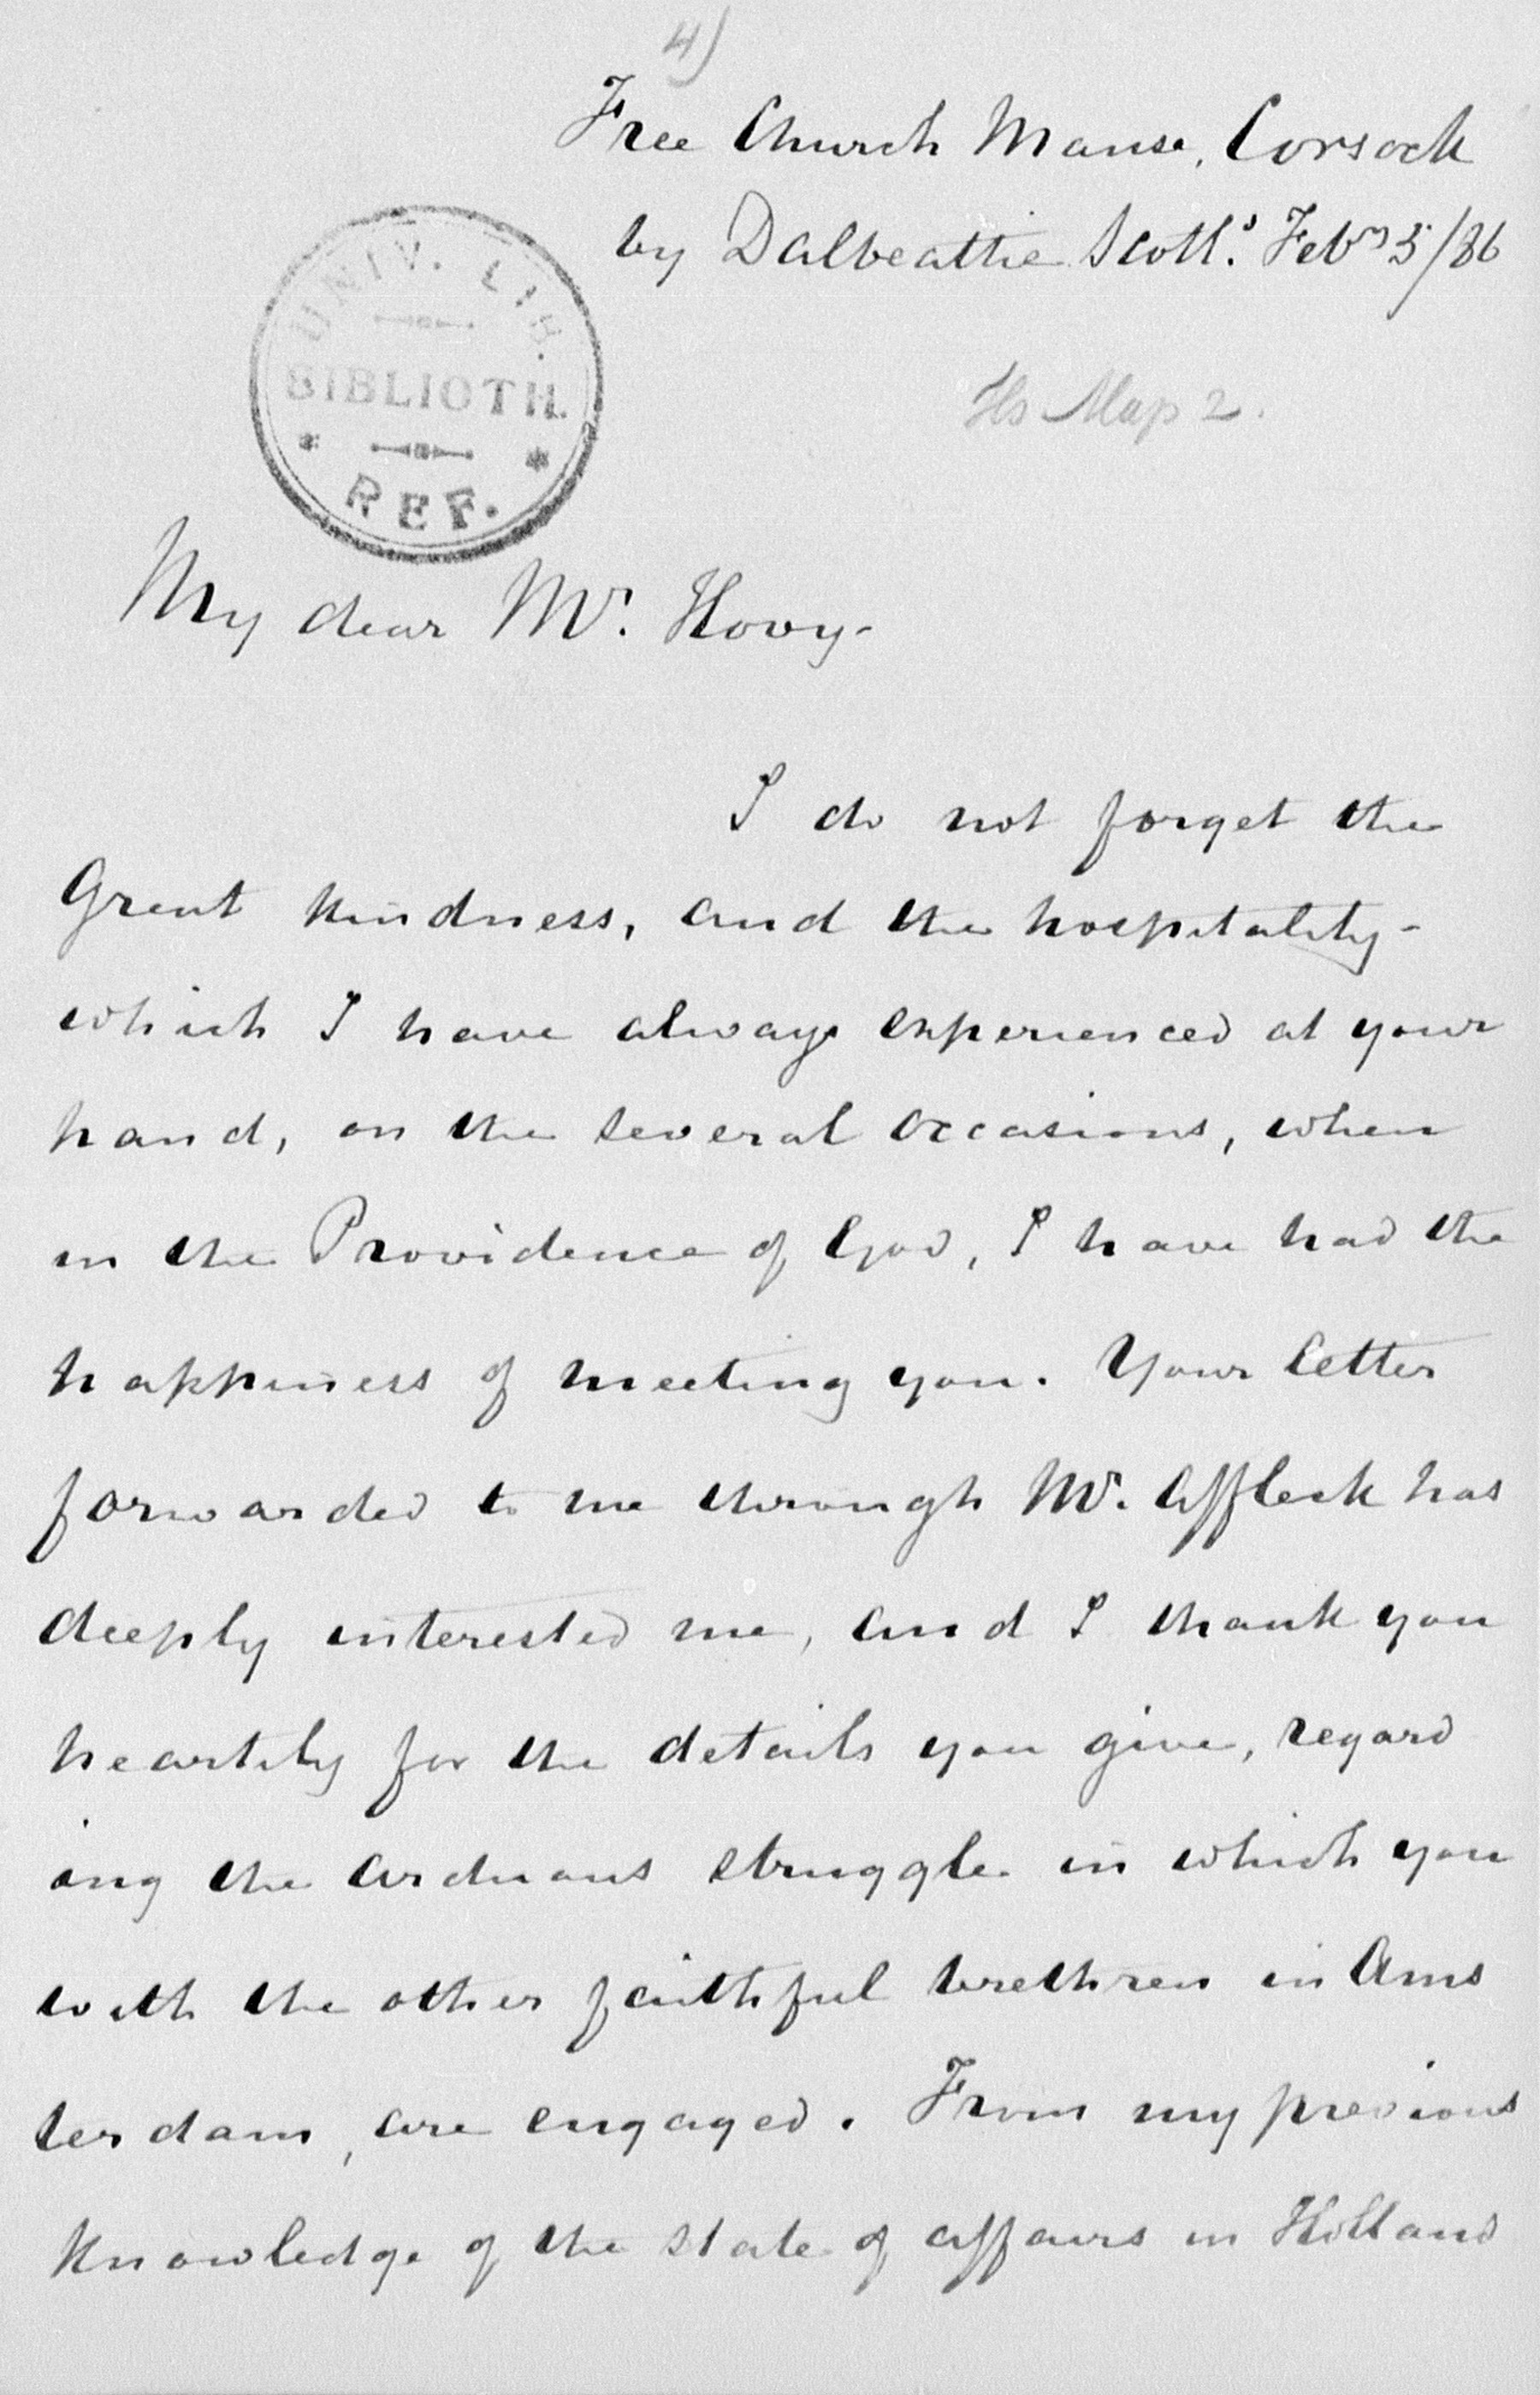 4)
Free Church Manse, Corsock
by Dalbeattie Scotld. Febry 5/86
UNIV. LIB.
BIBLIOTH.
REF.
Hs Map 2.
My dear Mr. Hovy-
I do not forget the
great kindness, and the hospitality-
which I have always experienced at your
hand, on the several occasions, when
in the Providence of God, I have had the
happiness of meeting you. Your letter
forwarded to me through Mr. Affleck has
deeply interested me, and I thank you
heartily for the details you give, regard
ing the arduous struggle in which you
with the other faithful brethren in Ams
terdam, are engaged. From my previous
knowledge of the state of affairs in Holland